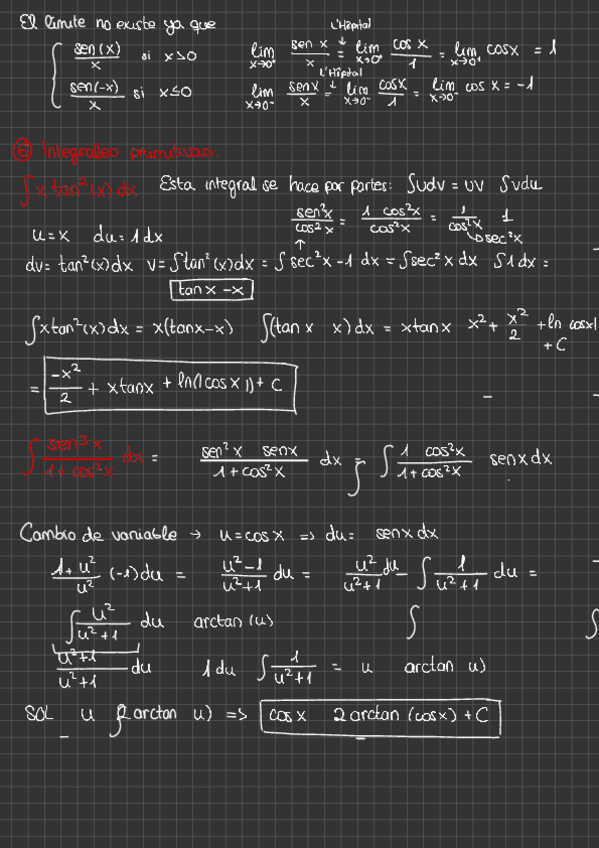 El límite no existe ya que
sen(x)/x si x>0 lim x→0⁺ sen x/x = (L'Hôpital) lim x→0⁺ cos x/1 = lim x→0⁺ cosx = 1
sen(-x)/x si x≤0 lim x→0⁻ senx/x = (L'Hôpital) lim x→0⁻ cosx/1 = lim x→0⁻ cos x = -1
⑥ Integrales primitivas:
∫x tan²(x) dx Esta integral se hace por partes: ∫udv = uv ∫vdu
sen²x/cos²x = 1 cos²x/cos²x = 1/cos²x 1
u=x du=1dx ↳sec²x
dv= tan²(x)dx v=∫tan²(x)dx = ∫sec²x-1 dx = ∫sec²x dx ∫1dx =
tanx -x
∫xtan²(x)dx = x(tanx-x) ∫(tanx x)dx = xtanx x²+ x²/2 +ln cosx| + C
= -x²/2 + xtanx + ln(|cosx|)+ C
∫ sen³x/1+cos²x dx = sen²x senx/1+cos²x dx = ∫ ∫ 1 cos²x/1+cos²x senxdx
Cambio de variable → u=cosx => du= senxdx
1+u²/u² (-1)du = u²-1/u²+1 du = u²/u²+1 du - ∫ 1/u²+1 du =
∫ u²/u²+1 du arctan(u) ∫ ∫
u²+1/u²+1 du 1du ∫ 1/u²+1 = u arctan u)
SOL u 2arctan u) => cosx 2arctan(cosx)+C